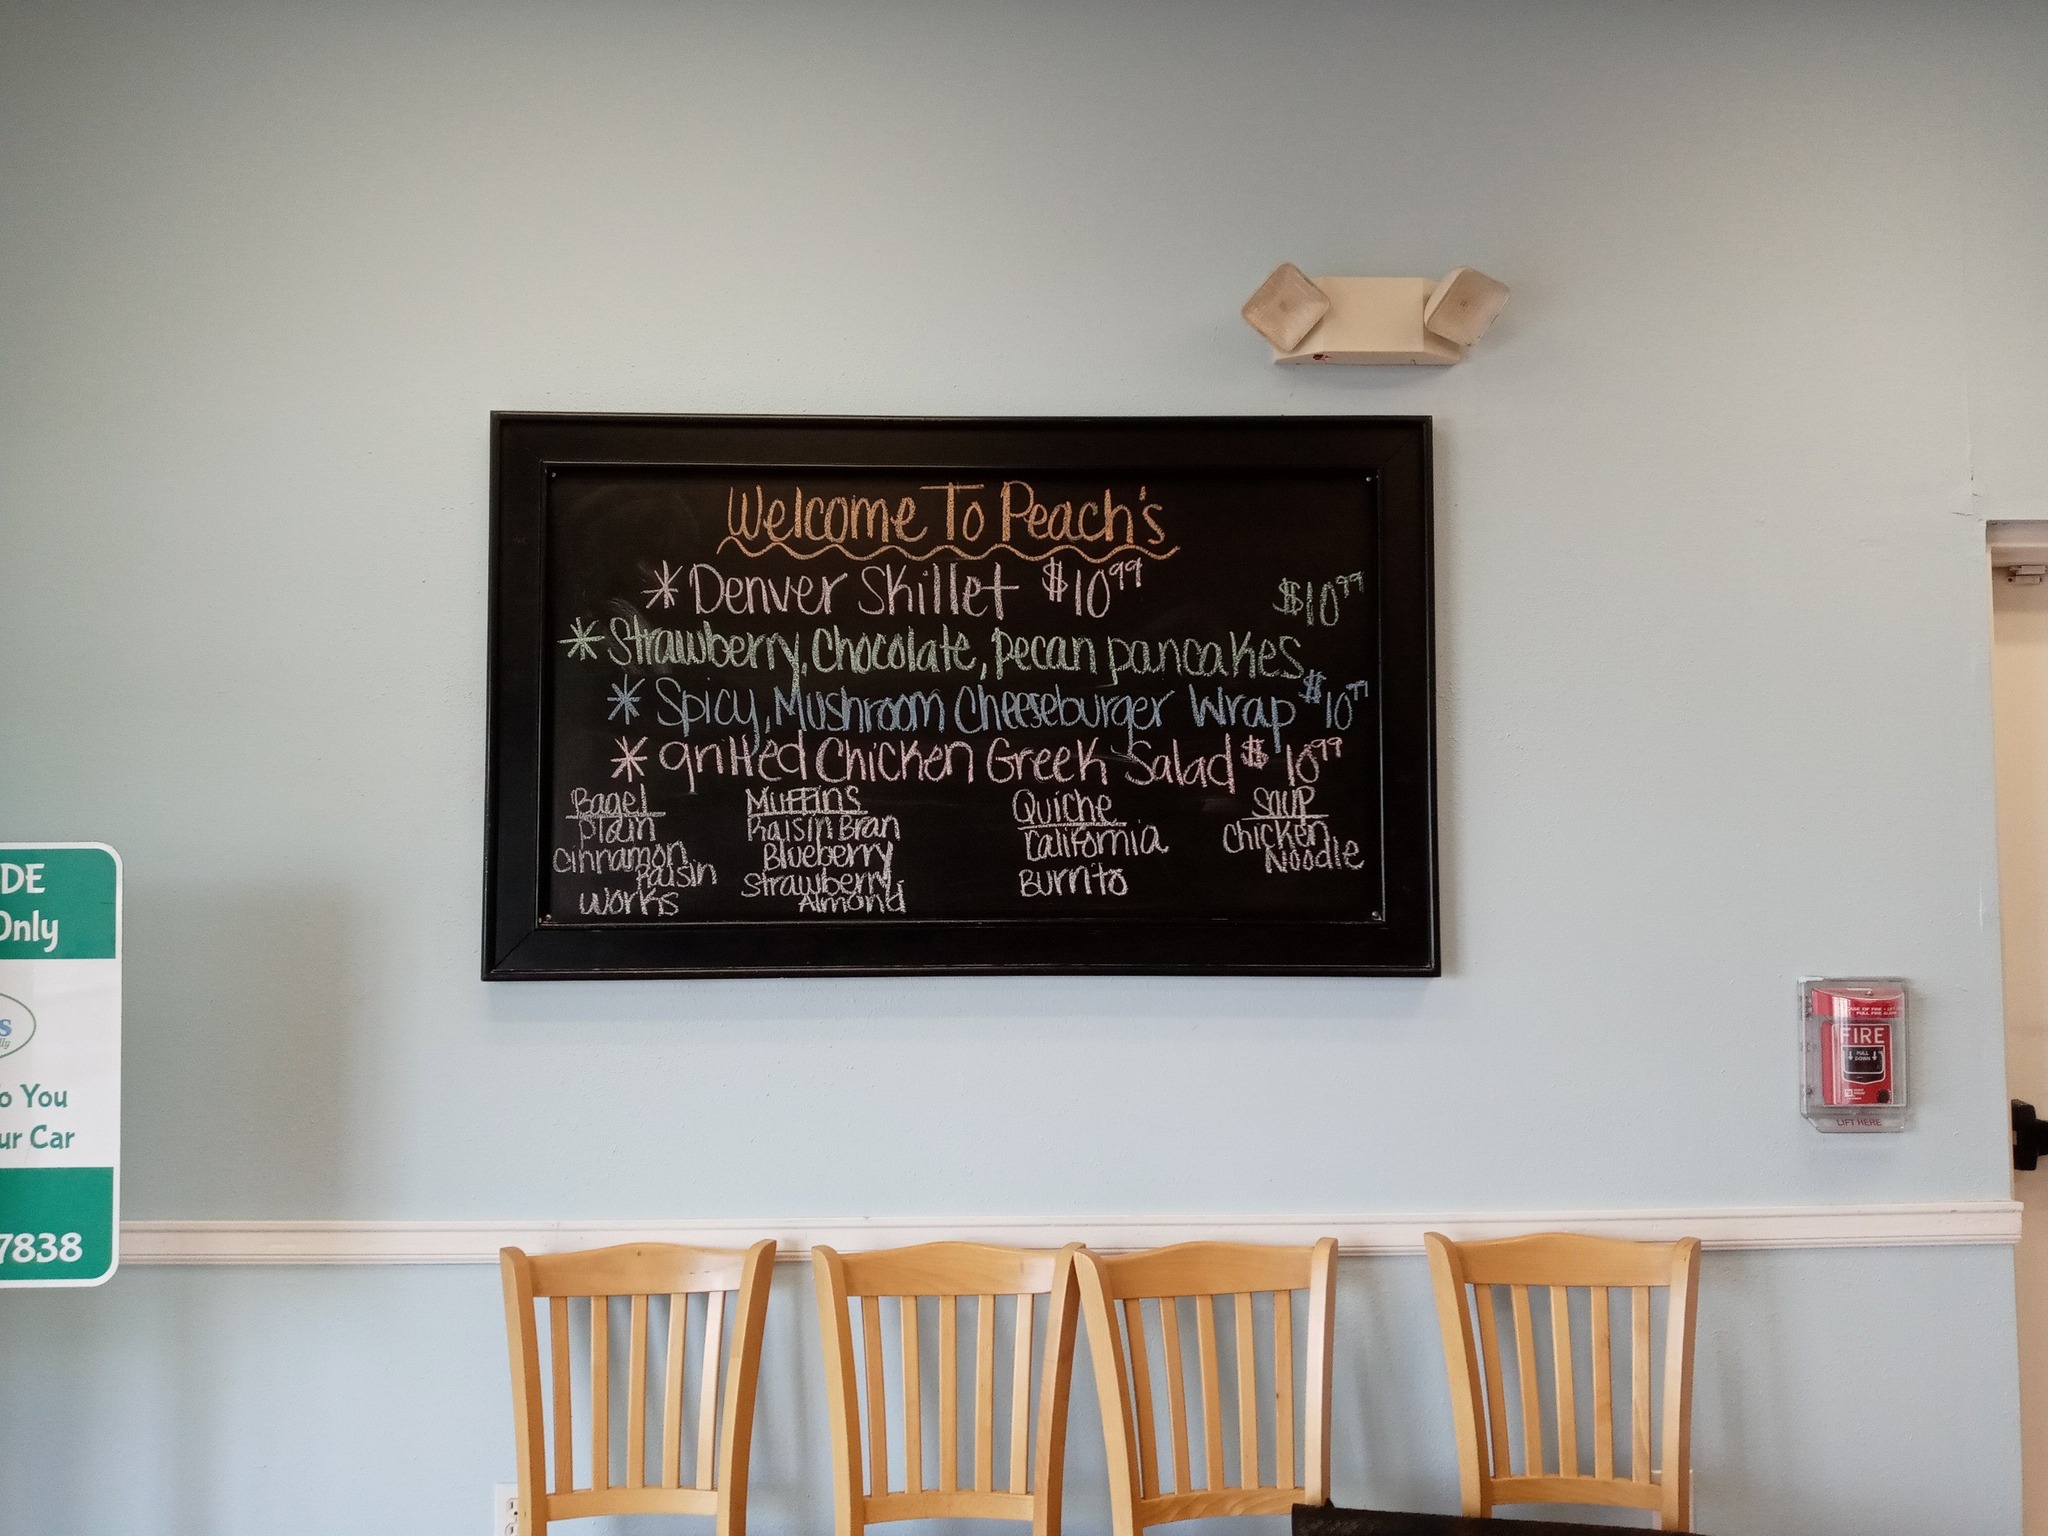 Welcome To Peach's
*Denver Skillet $10.99
$10.99
*Strawberry, Chocolate, pecan pancakes
*Spicy, Mushroom Cheeseburger Wrap $10.99
*grilled Chicken Greek Salad $10.99
Bagel
Plain
Cinnamon
Raisin
Works
Muffins
Raisin Bran
Blueberry
Strawberry
Almond
Quiche
California
Burrito
Soup
Chicken
Noodle
DE
Only
s
lly
o You
ur Car
7838
FIRE
PULL
DOWN
LIFT HERE